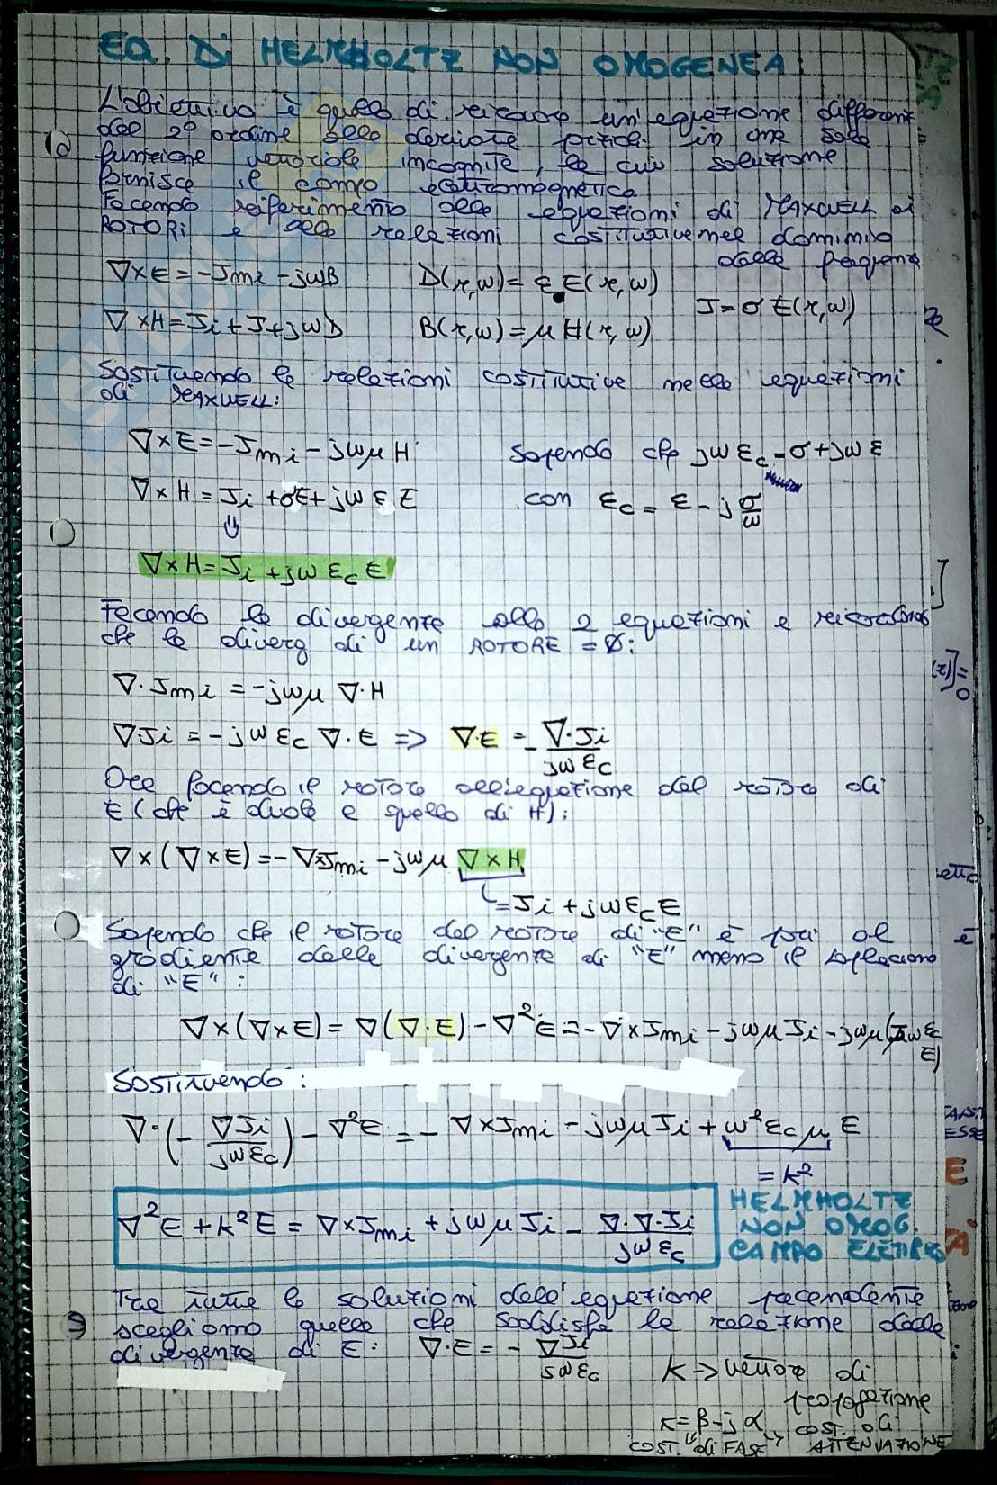 EQ. Di HELMHOLTZ NON OMOGENEA:
L'obiettivo è quello di ricavare un'equazione differenz
del 2° ordine alle derivate parziali in una sola
funzione vettoriale incognita, la cui soluzione
fornisce il campo elettromagnetico
Facendo riferimento alle equazioni di MAXWELL ai
ROTORI e alle relazioni costitutive nel dominio
delle frequenze
∇×E = -Jmi - jωB D(r,ω) = ε E(r,ω)
J = σ E(r,ω)
∇×H = Ji + J + jωD B(r,ω) = μ H(r,ω)
Sostituendo le relazioni costitutive nelle equazioni
di MAXWELL:
∇×E = -Jmi - jωμ H Sapendo che jωεc = σ + jωε
∇×H = Ji + σE + jωε E con εc = ε - j σ/ω
⇓
∇×H = Ji + jωεc E
Facendo la divergenza alle 2 equazioni e ricordando
che la diverg di un ROTORE = Ø:
∇·Jmi = -jωμ ∇·H
∇Ji = -jωεc ∇·E => ∇·E = - ∇·Ji / jωεc
Ora facendo il rotore all'equazione del rotore di
E (che è duale a quello di H):
∇×(∇×E) = -∇×Jmi - jωμ ∇×H
= Ji + jωεc E
Sapendo che il rotore del rotore di "E" è pari al
gradiente della divergenza di "E" meno il laplaciano
di "E":
∇×(∇×E) = ∇(∇·E) - ∇²E = -∇×Jmi - jωμ Ji - jωμ(jωεc
E)
Sostituendo:
∇·(- ∇Ji / jωεc) - ∇²E = - ∇×Jmi - jωμ Ji + ω²εcμ E
= k²
∇²E + k²E = ∇×Jmi + jωμ Ji - ∇·∇·Ji / jωεc
HELMHOLTZ
NON OMOG.
CAMPO ELETTRICO
Tra tutte le soluzioni dell'equazione precedente
scegliamo quella che soddisfa la relazione della
divergenza di E: ∇·E = - ∇Ji / jωεc
K -> vettore di
propagazione
K = β - j α -> cost. di
COST. di FASE ATTENUAZIONE